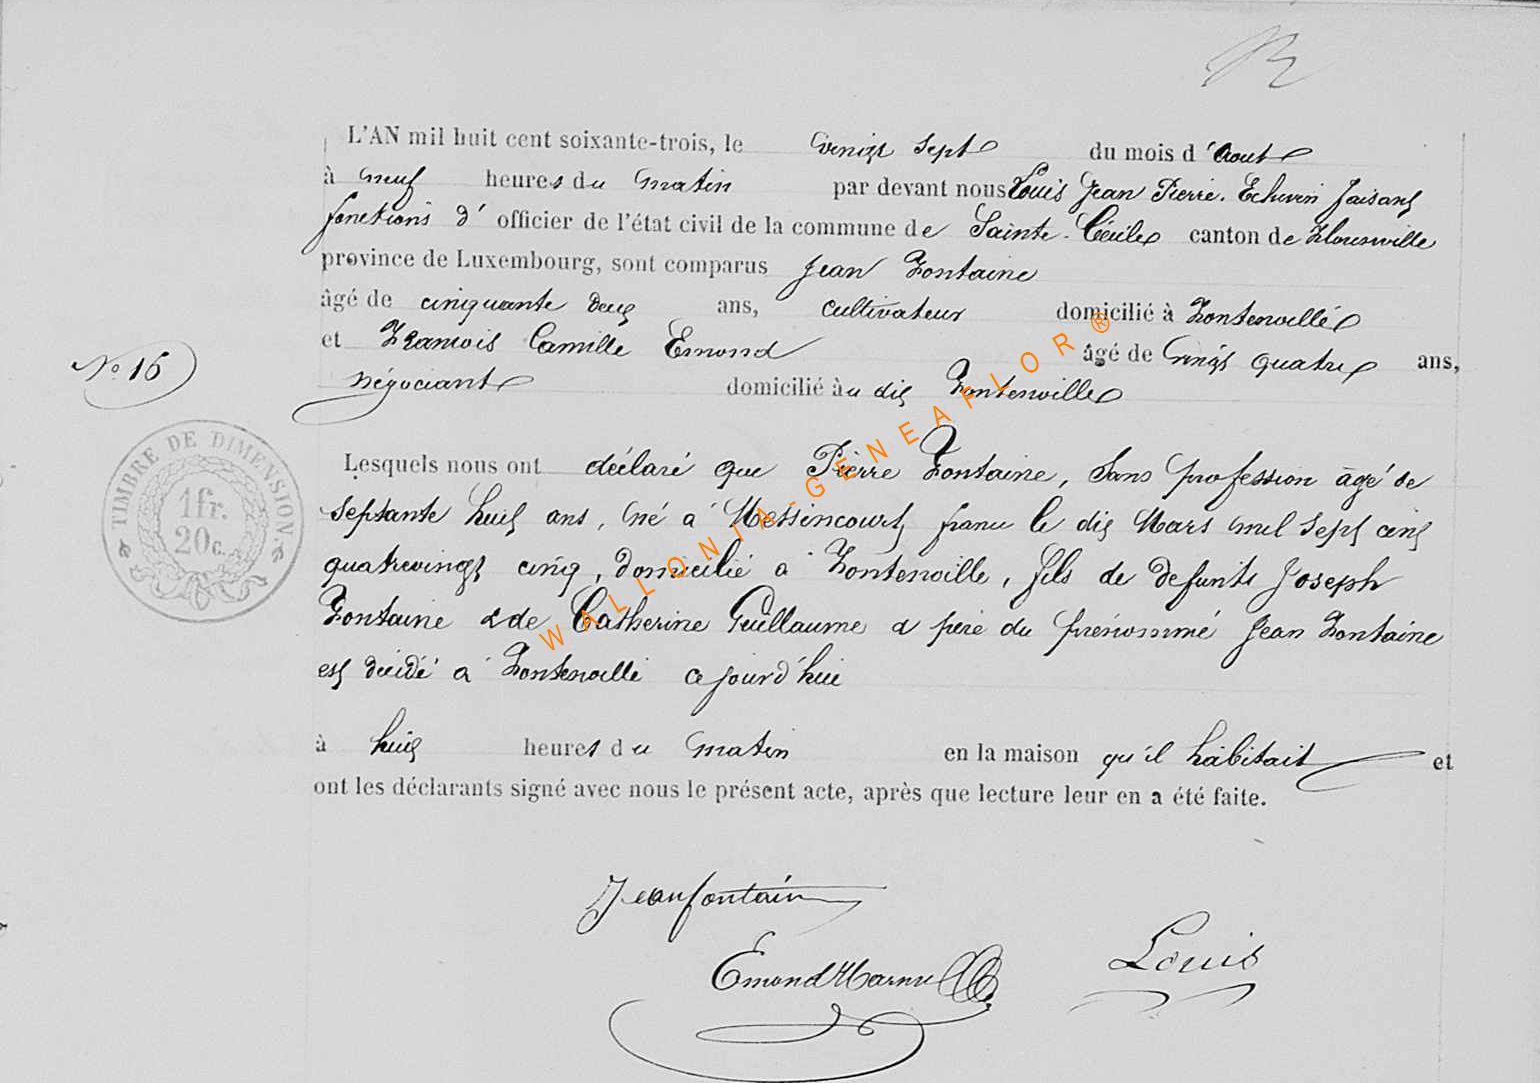 L'AN mil huit cent soixante-trois, le vingt sept du mois d'Aout
à neuf heures du matin par devant nous Louis Jean Pierre. Echevin faisant
fonctions d' officier de l'état civil de la commune de Sainte-Cécile canton de Florenville
province de Luxembourg, sont comparus Jean Fontaine
âgé de cinquante deux ans, cultivateur domicilié à Fontenoille
et François Camille Emond âgé de vingt quatre ans,
No 16
négociant domicilié au dit Fontenoille
Lesquels nous ont déclaré que Pierre Fontaine, sans profession âgé de
septante huit ans, né à Messincourt france le dix Mars mil sept cent
quatrevingt cinq, domicilié à Fontenoille, fils de defunts Joseph
Fontaine & de Catherine Guillaume & père du prénommé Jean Fontaine
est décédé à Fontenoille ce jourd'hui
à huit heures du matin en la maison qu'il habitait et
ont les déclarants signé avec nous le présent acte, après que lecture leur en a été faite.
TIMBRE DE DIMENSION.
1fr.
20c.
WALLONIA-GENEAFLOR ®
Jean fontain
Emond Marnu
Louis